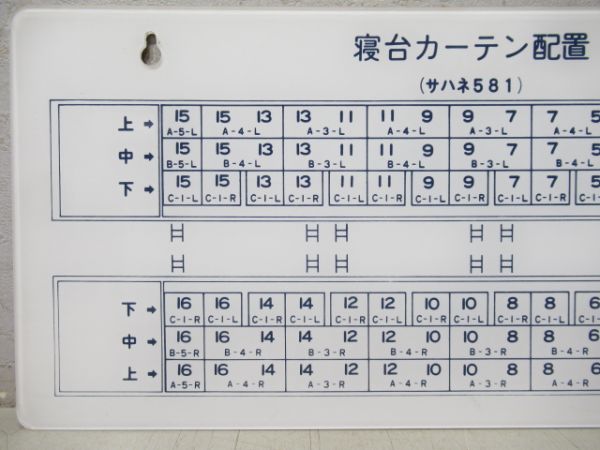 寝台カーテン配置
(サハネ581)
上→ 15 15 13 13 11 11 9 9 7 7 5
A-5-L A-4-L A-3-L A-4-L A-3-L A-4
中→ 15 15 13 13 11 11 9 9 7 7 5
B-5-L B-4-L B-3-L B-4-L B-3-L B-4
下→ 15 15 13 13 11 11 9 9 7 7 5
C-1-L C-1-R C-1-L C-1-R C-1-L C-1-R C-1-L C-1-R C-1-L C-1-R C-1-
下→ 16 16 14 14 12 12 10 10 8 8 6
C-1-R C-1-L C-1-R C-1-L C-1-R C-1-L C-1-R C-1-L C-1-R C-1-L C-1-
中→ 16 16 14 14 12 12 10 10 8 8 6
B-5-R B-4-R B-3-R B-4-R B-3-R B-4
上→ 16 16 14 14 12 12 10 10 8 8 6
A-5-R A-4-R A-3-R A-4-R A-3-R A-4